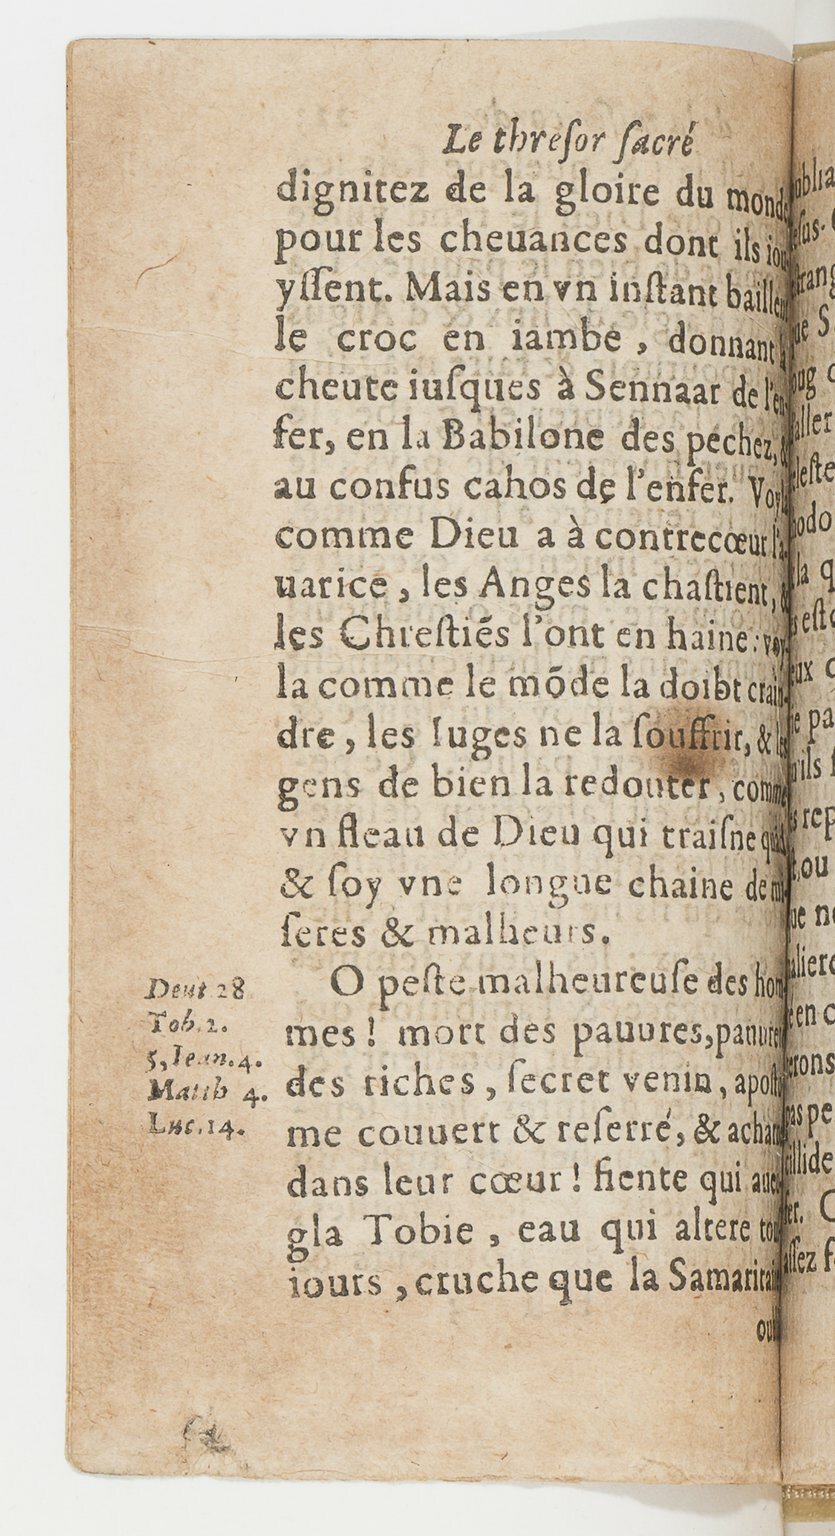 Le threſor ſacré
dignitez de la gloire du monde
pour les cheuances dont ils iou
yſſent. Mais en vn inſtant baillent
le croc en iambe, donnant
cheute iuſques à Sennaar de l'en
fer, en la Babilone des pechez,
au confus cahos de l'enfer. Voy
comme Dieu a à contrecœur l'a
uarice, les Anges la chaſtient,
les Chreſtiẽs l'ont en haine: voy
la comme le mõde la doibt crain
dre, les Iuges ne la ſouffrir, &
gens de bien la redouter, comme
vn fleau de Dieu qui traiſne
& ſoy vne longue chaine de mi
ſeres & malheurs.
O peſte malheureuſe des hom
mes! mort des pauures, pauureté
des riches, ſecret venin, apoſtu
me couuert & reſerré, & achar
dans leur cœur! fiente qui aueu
gla Tobie, eau qui altere tou
iours, cruche que la Samaritai
Deut 28
Tob. 2.
5, Iean. 4.
Matth 4.
Luc. 14.